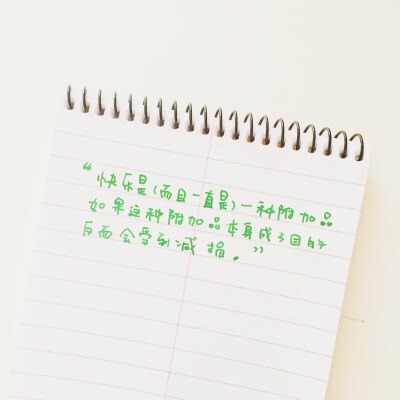 “快乐是(而且一直是)一种附加品
如果这种附加品本身成了目的
反而会受到减损。”